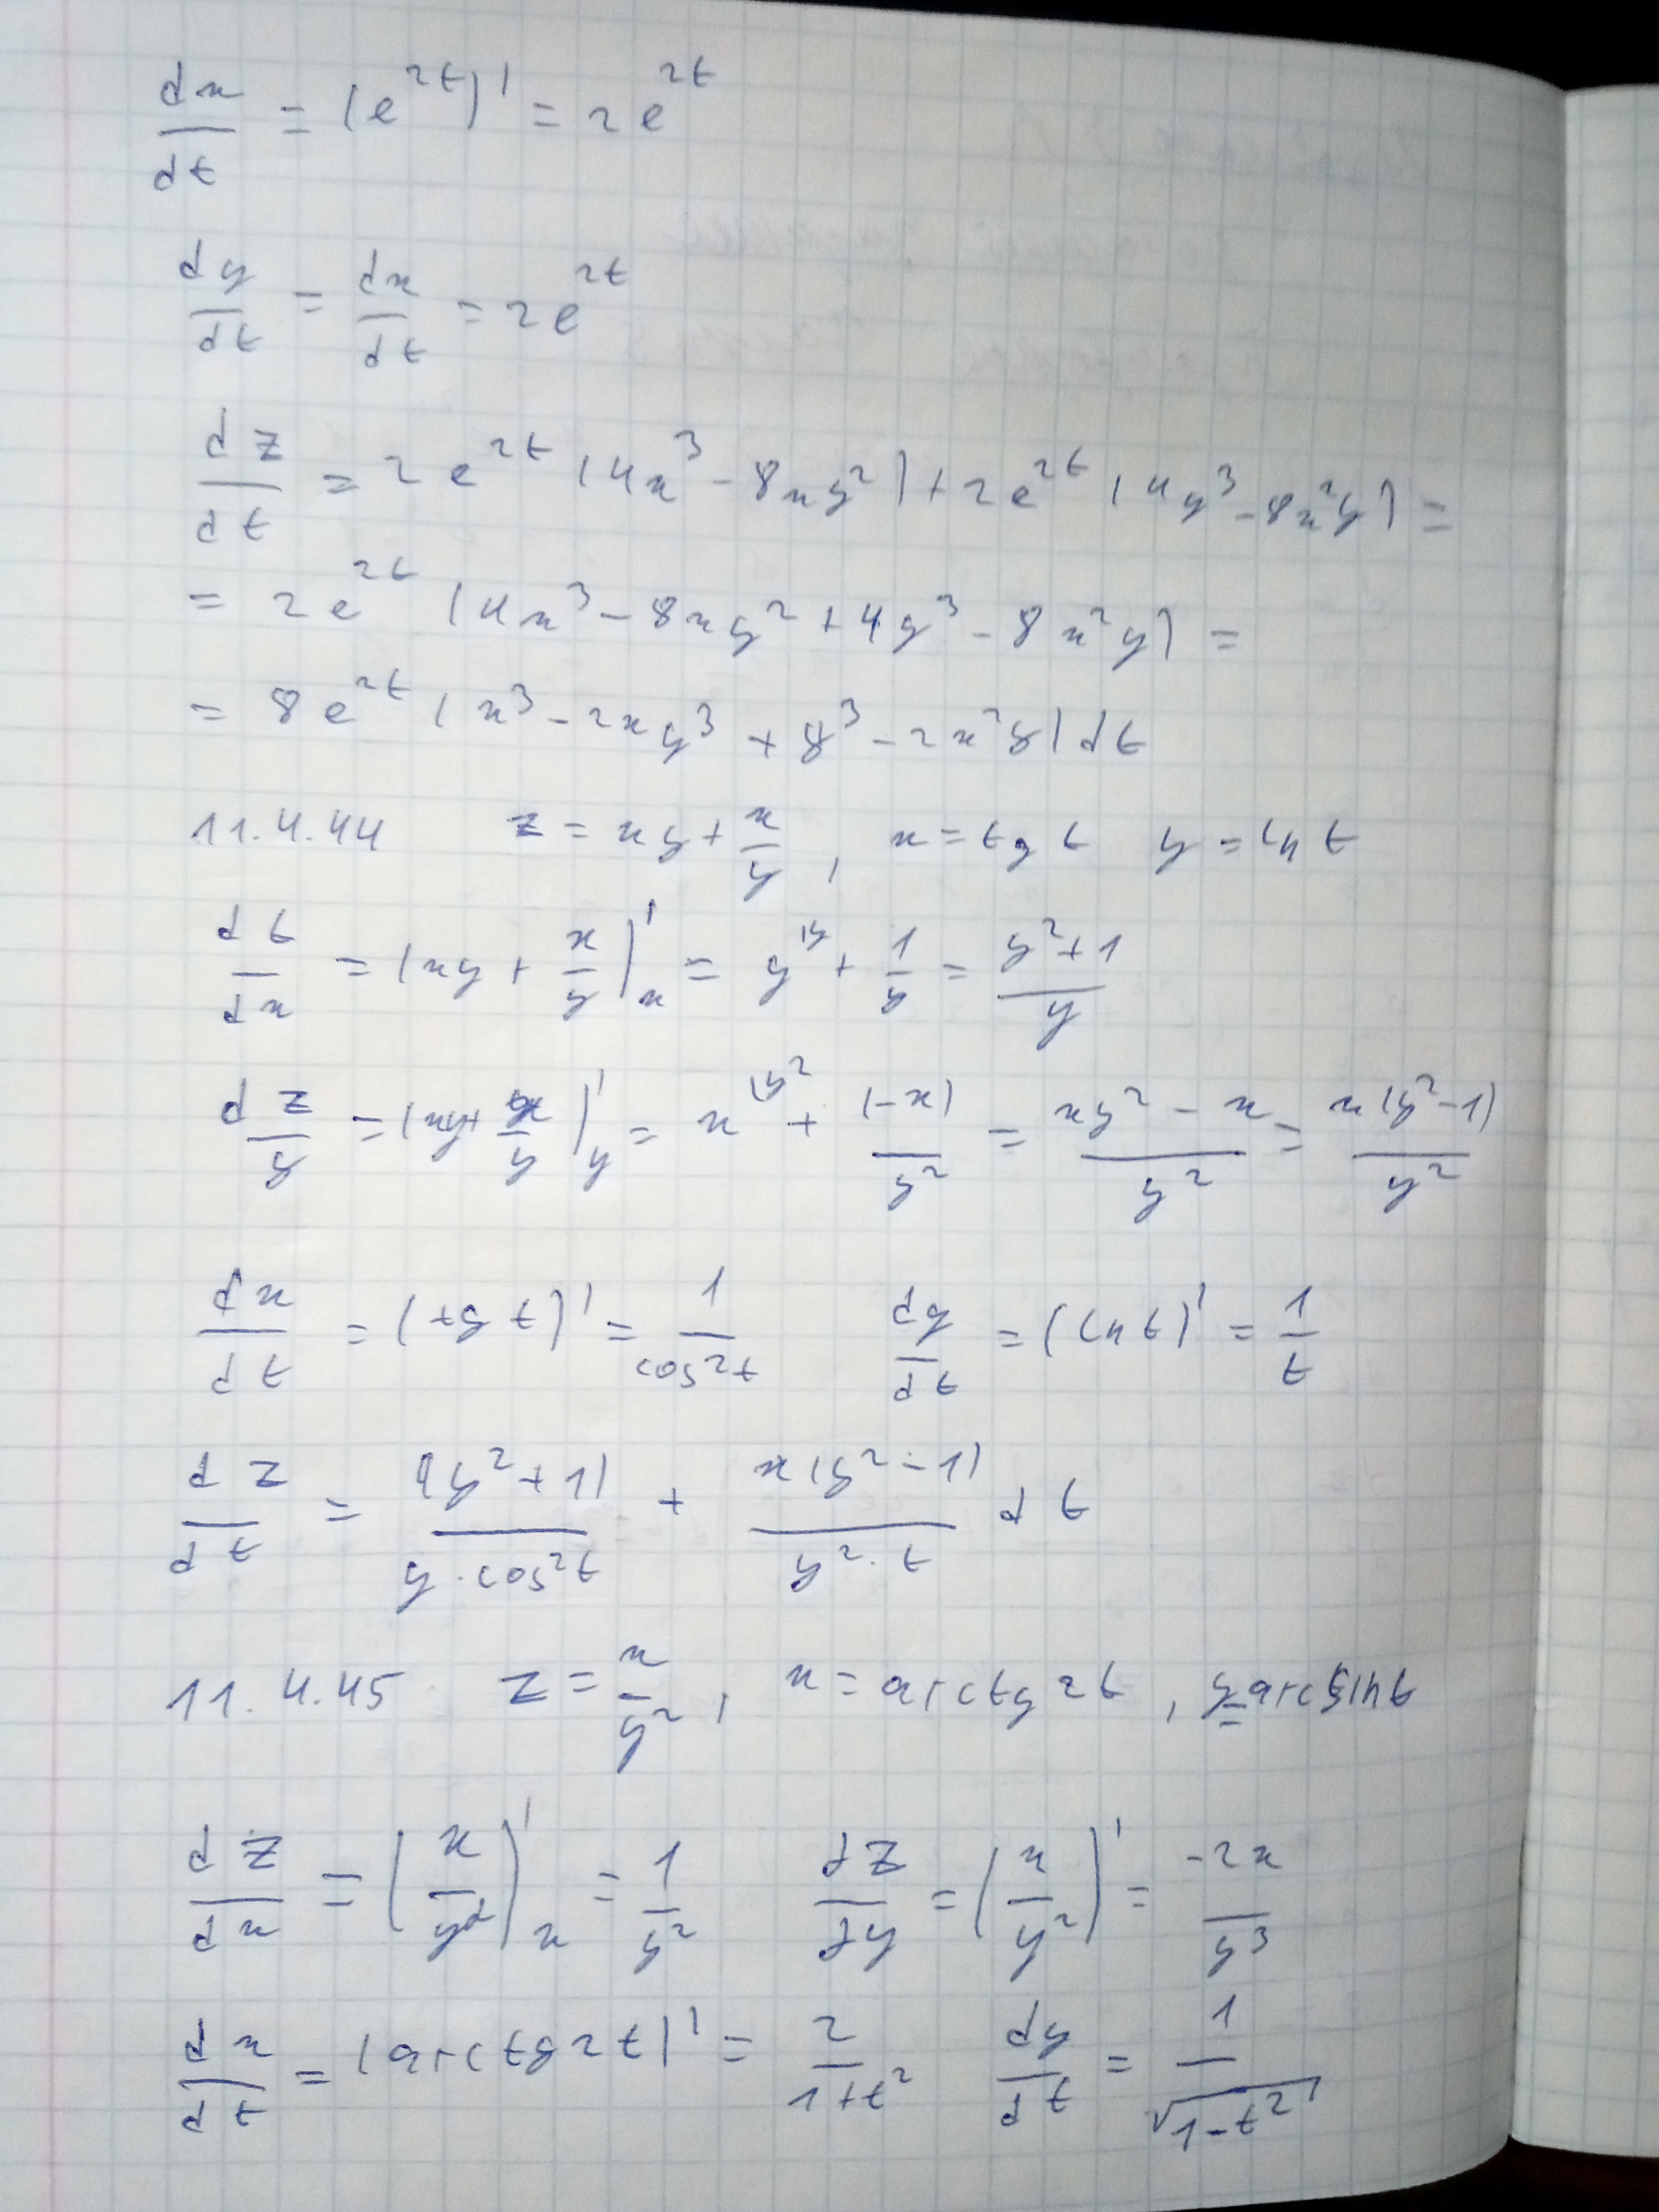 dx/dt = (e^2t)' = 2e^2t
dy/dt = dx/dt = 2e^2t
dz/dt = 2e^2t (4x^3 - 8xy^2) + 2e^2t (4y^3 - 8x^2y) =
= 2e^2t (4x^3 - 8xy^2 + 4y^3 - 8x^2y) =
= 8e^2t (x^3 - 2xy^3 + y^3 - 2x^2y) dt
11.4.44 z = xy + x/y, x = tg t y = ln t
dt/dx = (xy + x/y)'x = y^(y + 1/y = (y^2+1)/y
dz/y = (xy + x/y)'y = x^(y^2 + (-x)/y^2 = (xy^2 - x)/y^2 = x(y^2-1)/y^2
dx/dt = (tg t)' = 1/cos^2t dy/dt = (ln t)' = 1/t
dz/dt = (y^2+1)/(y · cos^2t) + x(y^2-1)/(y^2 · t) dt
11.4.45 z = x/y^2, x = arctg 2t, y = arcsin t
dz/dx = (x/y^2)'x = 1/y^2 ∂z/∂y = (x/y^2)' = -2x/y^3
dx/dt = (arctg 2t)' = 2/(1+t^2) dy/dt = 1/√(1-t^2)